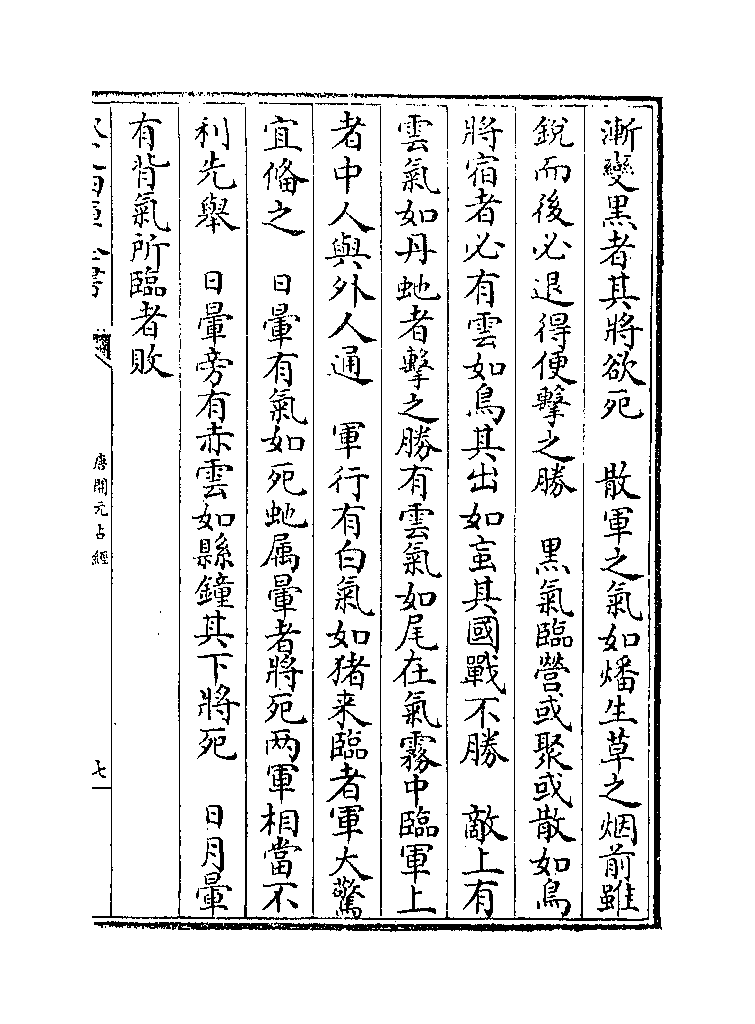 漸變黒者其將欲死　散軍之氣如燔生草之烟前雖
銳而後必退得便擊之勝　黒氣臨營或聚或散如鳥
將宿者必有雲如鳥其出如䖟其國戰不勝　敵上有
雲氣如丹虵者擊之勝有雲氣如尾在氣霧中臨軍上
者中人與外人通　軍行有白氣如猪来臨者軍大驚
宜俻之　日暈有氣如死虵属暈者將死两軍相當不
利先舉　日暈旁有赤雲如縣鐘其下將死　日月暈
有背氣所臨者敗
欽定四庫全書
唐開元占經
七